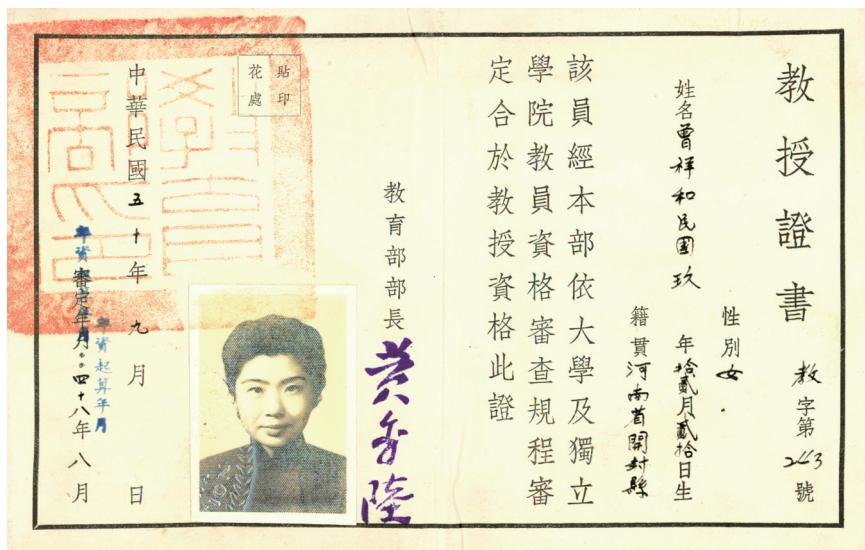 教授證書
教字第2663號
性別女
姓名曾祥和民國玖年拾貳月貳拾日生
籍貫河南省開封縣
該員經本部依大學及獨立
學院教員資格審查規程審
定合於教授資格此證
教育部部長黃季陸
貼印
花處
中華民國五十年九月 日
年資起算年月
年資審定年月:四十八年八月